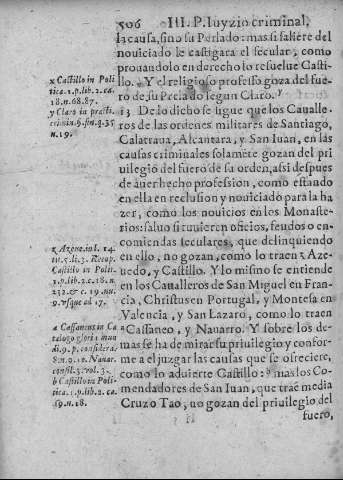 506 III. P. Iuyzio criminal,
la causa, sino su Perlado: mas si saliere del
nouiciado le castigara el secular, como
prouandolo en derecho lo resuelue Casti-
llo. x Y el religioso professo goza del fue-
ro de su Prelado segun Claro. y
13 De lo dicho se sigue que los Caualle-
ros de las ordenes militares de Santiago,
Calatraua, Alcantara, y San Iuan, en las
causas criminales solamẽte gozan del pri
uilegio del fuero de su orden, assi despues
de auer hecho profession, como estando
en ella en reclusion y nouiciado para la ha
zer, como los nouicios en los Monaste-
rios: saluo si tuuieren oficios, feudos o en-
comiendas seculares, que delinquiendo
en ello, no gozan, como lo traen z Aze-
uedo, y Castillo. Y lo mismo se entiende
en los Caualleros de San Miguel en Fran-
cia, Christus en Portugal, y Montesa en
Valencia, y San Lazaro, como lo traen
a Cassaneo, y Nauarro. Y sobre los de-
mas se ha de mirar su priuilegio y confor-
me a el juzgar las causas que se ofreciere,
como lo aduierte Castillo: b mas los Co-
mendadores de San Iuan, que trae media
Cruz o Tao, no gozan del priuilegio del
fuero,
x Castillo in Poli
tica. 1. p. lib. 2. ca.
18. n. 68. 87.
y Claro in practi.
crimin. §. fin. q. 35
n. 19.
z Azeue. in l. 14.
Castillo in Polit.
1. p. lib. 2. c. 18. n.
232. & c. 19. nu.
9. vsque ad 17.
a Cassaneus in Ca
talogo glorie mun
di. 9. p. considera.
consil. 3. vol. 3.
b Castillo in Poli-
tica. 1. p. lib. 2. ca.
19. n. 18.